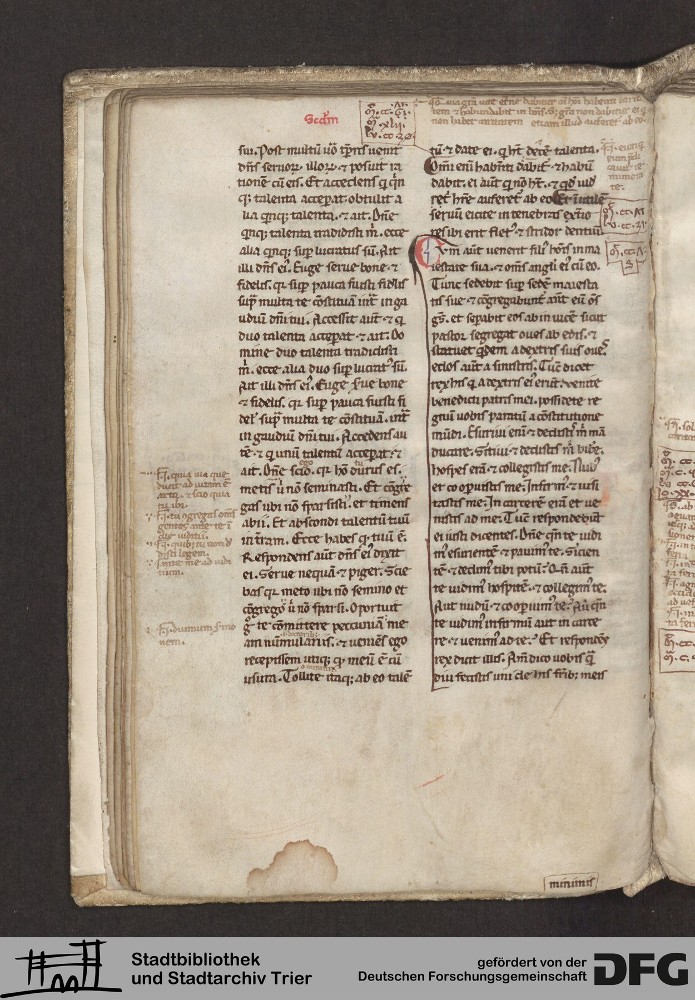 Scdm
sui. Post multū ūo tp̄ris uenit
dn̄s seruoꝝ illoꝝ. ⁊ posuit ra
tionē cū eis. Et accedens q̇ qn̄
qꝫ talenta acceꝑat. obtulit a
lia qnqꝫ talenta. ⁊ ait. Dn̄e
qnqꝫ talenta tradidisti m̄. ecce
alia qnqꝫ suꝑ lucratus sū. Ait
illi dn̄s ei. Euge serue bone ⁊
fidelis. qr suꝑ pauca fuisti fidelis
supͣ multa te c̄stituā int̄ in ga
udiū dn̄i tui. Accessit aut̄ ⁊ q̇
duo talenta acceꝑat. ⁊ ait. Do
mine duo talenta tradidisti
m̄. ecce alia duo suꝑ lucratꝰ sū.
Ait illi dn̄s ei. Euge s̄ue bone
⁊ fidelis. qr suꝑ pauca fuisti fi
del. supͣ multa te c̄stituā. int̄
in gaudiū dn̄i tui. Accedens au
tē ⁊ q̇ unū talentū acceꝑat. ⁊
ait. Dn̄e scio qr hō durus es.
metis ū n̄ seminasti. Et c̄gre
gas ubi n̄ sparsisti. et timens
abii. Et abscondi talentū tuū
in t̄ram. Ecce habes qͩ tuū ē.
Respondens aut̄ dn̄s ei dixit
ei. Serue nequā ⁊ piger. Scie
bas qr meto ubi n̄o semino et
c̄grego ū n̄o sparsi. Oportuit
gͦ te c̄mittere peccuniā me
am numulariis. ⁊ ueniēs ego
recepissem utiqꝫ. qͩ meū ē cū
usura. Tollite itaqꝫ ab eo talē
tū. ⁊ date ei. q̇ ht̄ decē talenta.
Omi enī habn̄ti dabit ⁊ habū
dabit. ei aut̄ q̇ nō ht̄. ⁊ qͩ uid
ret h̄re auferet ab eo. Et inutilē
seruū eicite in tenebras ext̄io
res ibi erit fletꝰ ⁊ stridor dentiū.
Cvm aut̄ uenerit filiꝰ hōis in ma
iestate sua. ⁊ om̄s angli ei cū eo.
Tunc sedebit suꝑ sedē maiesta
tis sue ⁊ c̄gregabunt̄ aut̄ eū om̄s
gs̄. et seꝑabit eos ab inuicē sicut
pastor segregat oues ab edis. ⁊
statuet qͥdem a dextris suis oues.
edos aut̄ a sinistris. Tūc dicet
rex his q̇ a dextris ei erūt. uenite
benedicti patris mei. possidete re
gnū uobis paratū a c̄stitutione
mūdi. Esuriui enī ⁊ dedistis m̄ mā
ducare. Sitiui ⁊ dedistis m̄ bibe.
hospes erā ⁊ collegistis me. Nudꝰ
et coopuistis me. Infirmꝰ ⁊ uisi
tastis me. In carcere erā et ue
nistis ad me. Tūc respondebūt
ei iusti dicentes. Dn̄e qn̄ te uidi
mꝰ esurientē ⁊ pauimꝰ te. Sicien
tē ⁊ dedimꝰ tibi potū. Qn̄ aut̄
te uidimꝰ hospitē. ⁊ collegimꝰ te.
Aut nudū ⁊ coopuimꝰ te. Aut qn̄
te uidimꝰ infirmū aut in carce
re ⁊ uenimꝰ ad te. Et respondēs
rex dicit illis. Am̄ dico uobis qͣ
diu fecistis uni de his fr̄ibꝫ meis
minimis
Stadtbibliothek
und Stadtarchiv Trier
gefördert von der
Deutschen Forschungsgemeinschaft
DFG